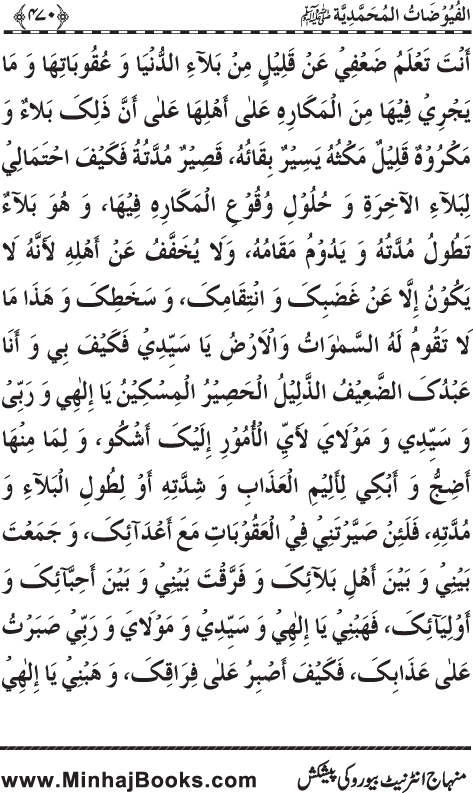 الفُيُوْضَاتُ المُحَمَّدِيَّة ﷺ ﴿۴۷۰﴾
أَنْتَ تَعْلَمُ ضَعْفِيْ عَنْ قَلِيْلٍ مِنْ بَلَآءِ الدُّنْيَا وَ عُقُوْبَاتِهَا وَ مَا
يَجْرِيْ فِيْهَا مِنَ الْمَكَارِهِ عَلٰى أَهْلِهَا عَلٰى أَنَّ ذٰلِکَ بَلاءٌ وَ
مَکْرُوْهٌ قَلِيْلٌ مَکْثُهُ يَسِيْرٌ بِقَائُهُ، قَصِيْرٌ مُدَّتُهُ فَکَيْفَ احْتِمَالِيْ
لِبَلَاءِ الآخِرَةِ وَ حُلُوْلِ وُقُوْعِ الْمَکَارِهِ فِيْهَا، وَ هُوَ بَلَآءٌ
تَطُوْلُ مُدَّتُهُ وَ يَدُوْمُ مَقَامُهُ، وَلَا يُخَفَّفُ عَنْ أَهْلِهِ لأَنَّهُ لَا
يَکُوْنُ إِلَّا عَنْ غَضَبِکَ وَ انْتِقَامِکَ، وَ سَخَطِکَ وَ هٰذَا مَا
لَا تَقُوْمُ لَهُ السَّمٰوَاتُ وَالْاَرْضُ يَا سَيِّدِيْ فَکَيْفَ بِي وَ أَنَا
عَبْدُکَ الضَّعِيْفُ الذَّلِيْلُ الْحَصِيْرُ الْمِسْکِيْنُ يَا إِلٰهِي وَ رَبِّيْ
وَ سَيِّدِي وَ مَوْلَايَ لأَيِّ الْأُمُوْرِ إِلَيْکَ أَشْکُو، وَ لِمَا مِنْهَا
أَضِجُّ وَ أَبْکِي لِأَلِيْمِ الْعَذَابِ وَ شِدَّتِهِ أَوْ لِطُولِ الْبَلَآءِ وَ
مُدَّتِهِ، فَلَئِنْ صَيَّرْتَنِيْ فِيْ الْعُقُوْبَاتِ مَعَ أَعْدَآئِکَ، وَ جَمَعْتَ
بَيْنِيْ وَ بَيْنَ أَهْلِ بَلآئِکَ وَ فَرَّقْتَ بَيْنِيْ وَ بَيْنَ أَحِبَّآئِکَ وَ
أَوْلِيَآئِکَ، فَهَبْنِي يَا إِلٰهِيْ وَ سَيِّدِيْ وَ مَوْلَايَ وَ رَبِّيْ صَبَرْتُ
عَلٰى عَذَابِکَ، فَکَيْفَ أَصْبِرُ عَلٰى فِرَاقِکَ، وَ هَبْنِيْ يَا إِلٰهِيْ
www.MinhajBooks.com منہاج انٹرنیٹ بیورو کی پیشکش